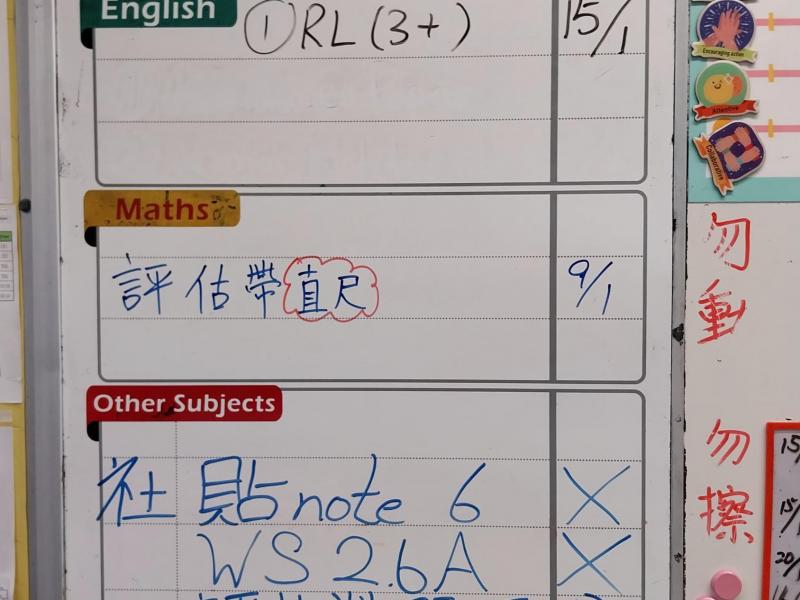 English
① RL (3+) 15/1
Maths
評估帶直尺 9/1
Other Subjects
社 貼note 6 X
WS 2.6A X
Encouraging action
Attentive
Collaborative
勿動
勿擦
15/
15/
20/